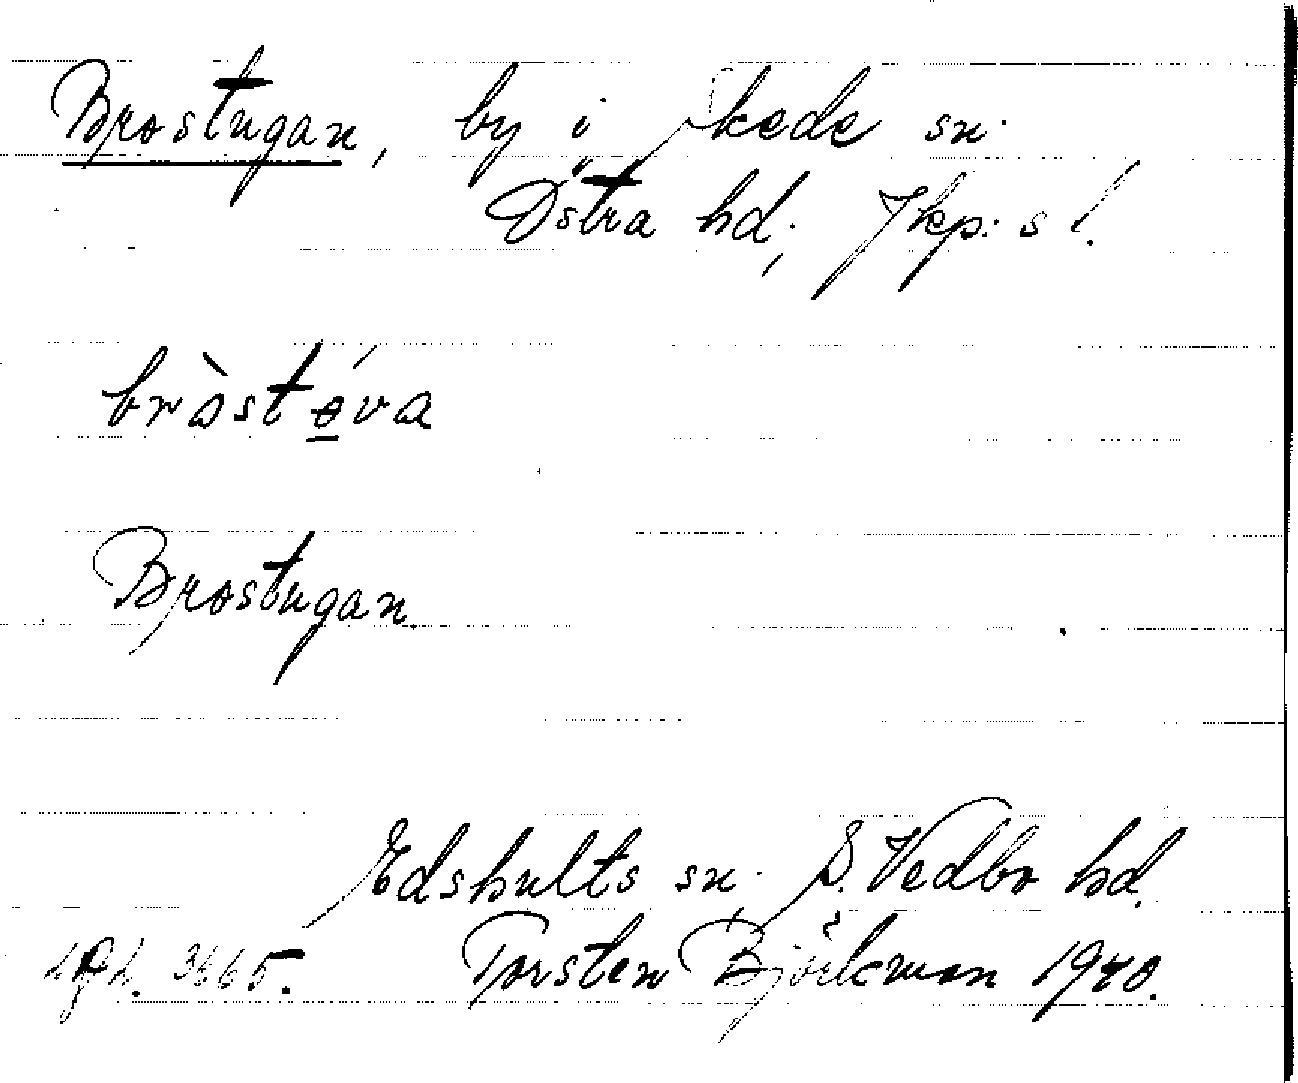 Brostugan, by i Skede sn.
Östra hd; Jkp:s l.
bròstóva
Brostugan
Edshults sn. S. Vedbo hd.
3665. Torsten Björkman 1940.